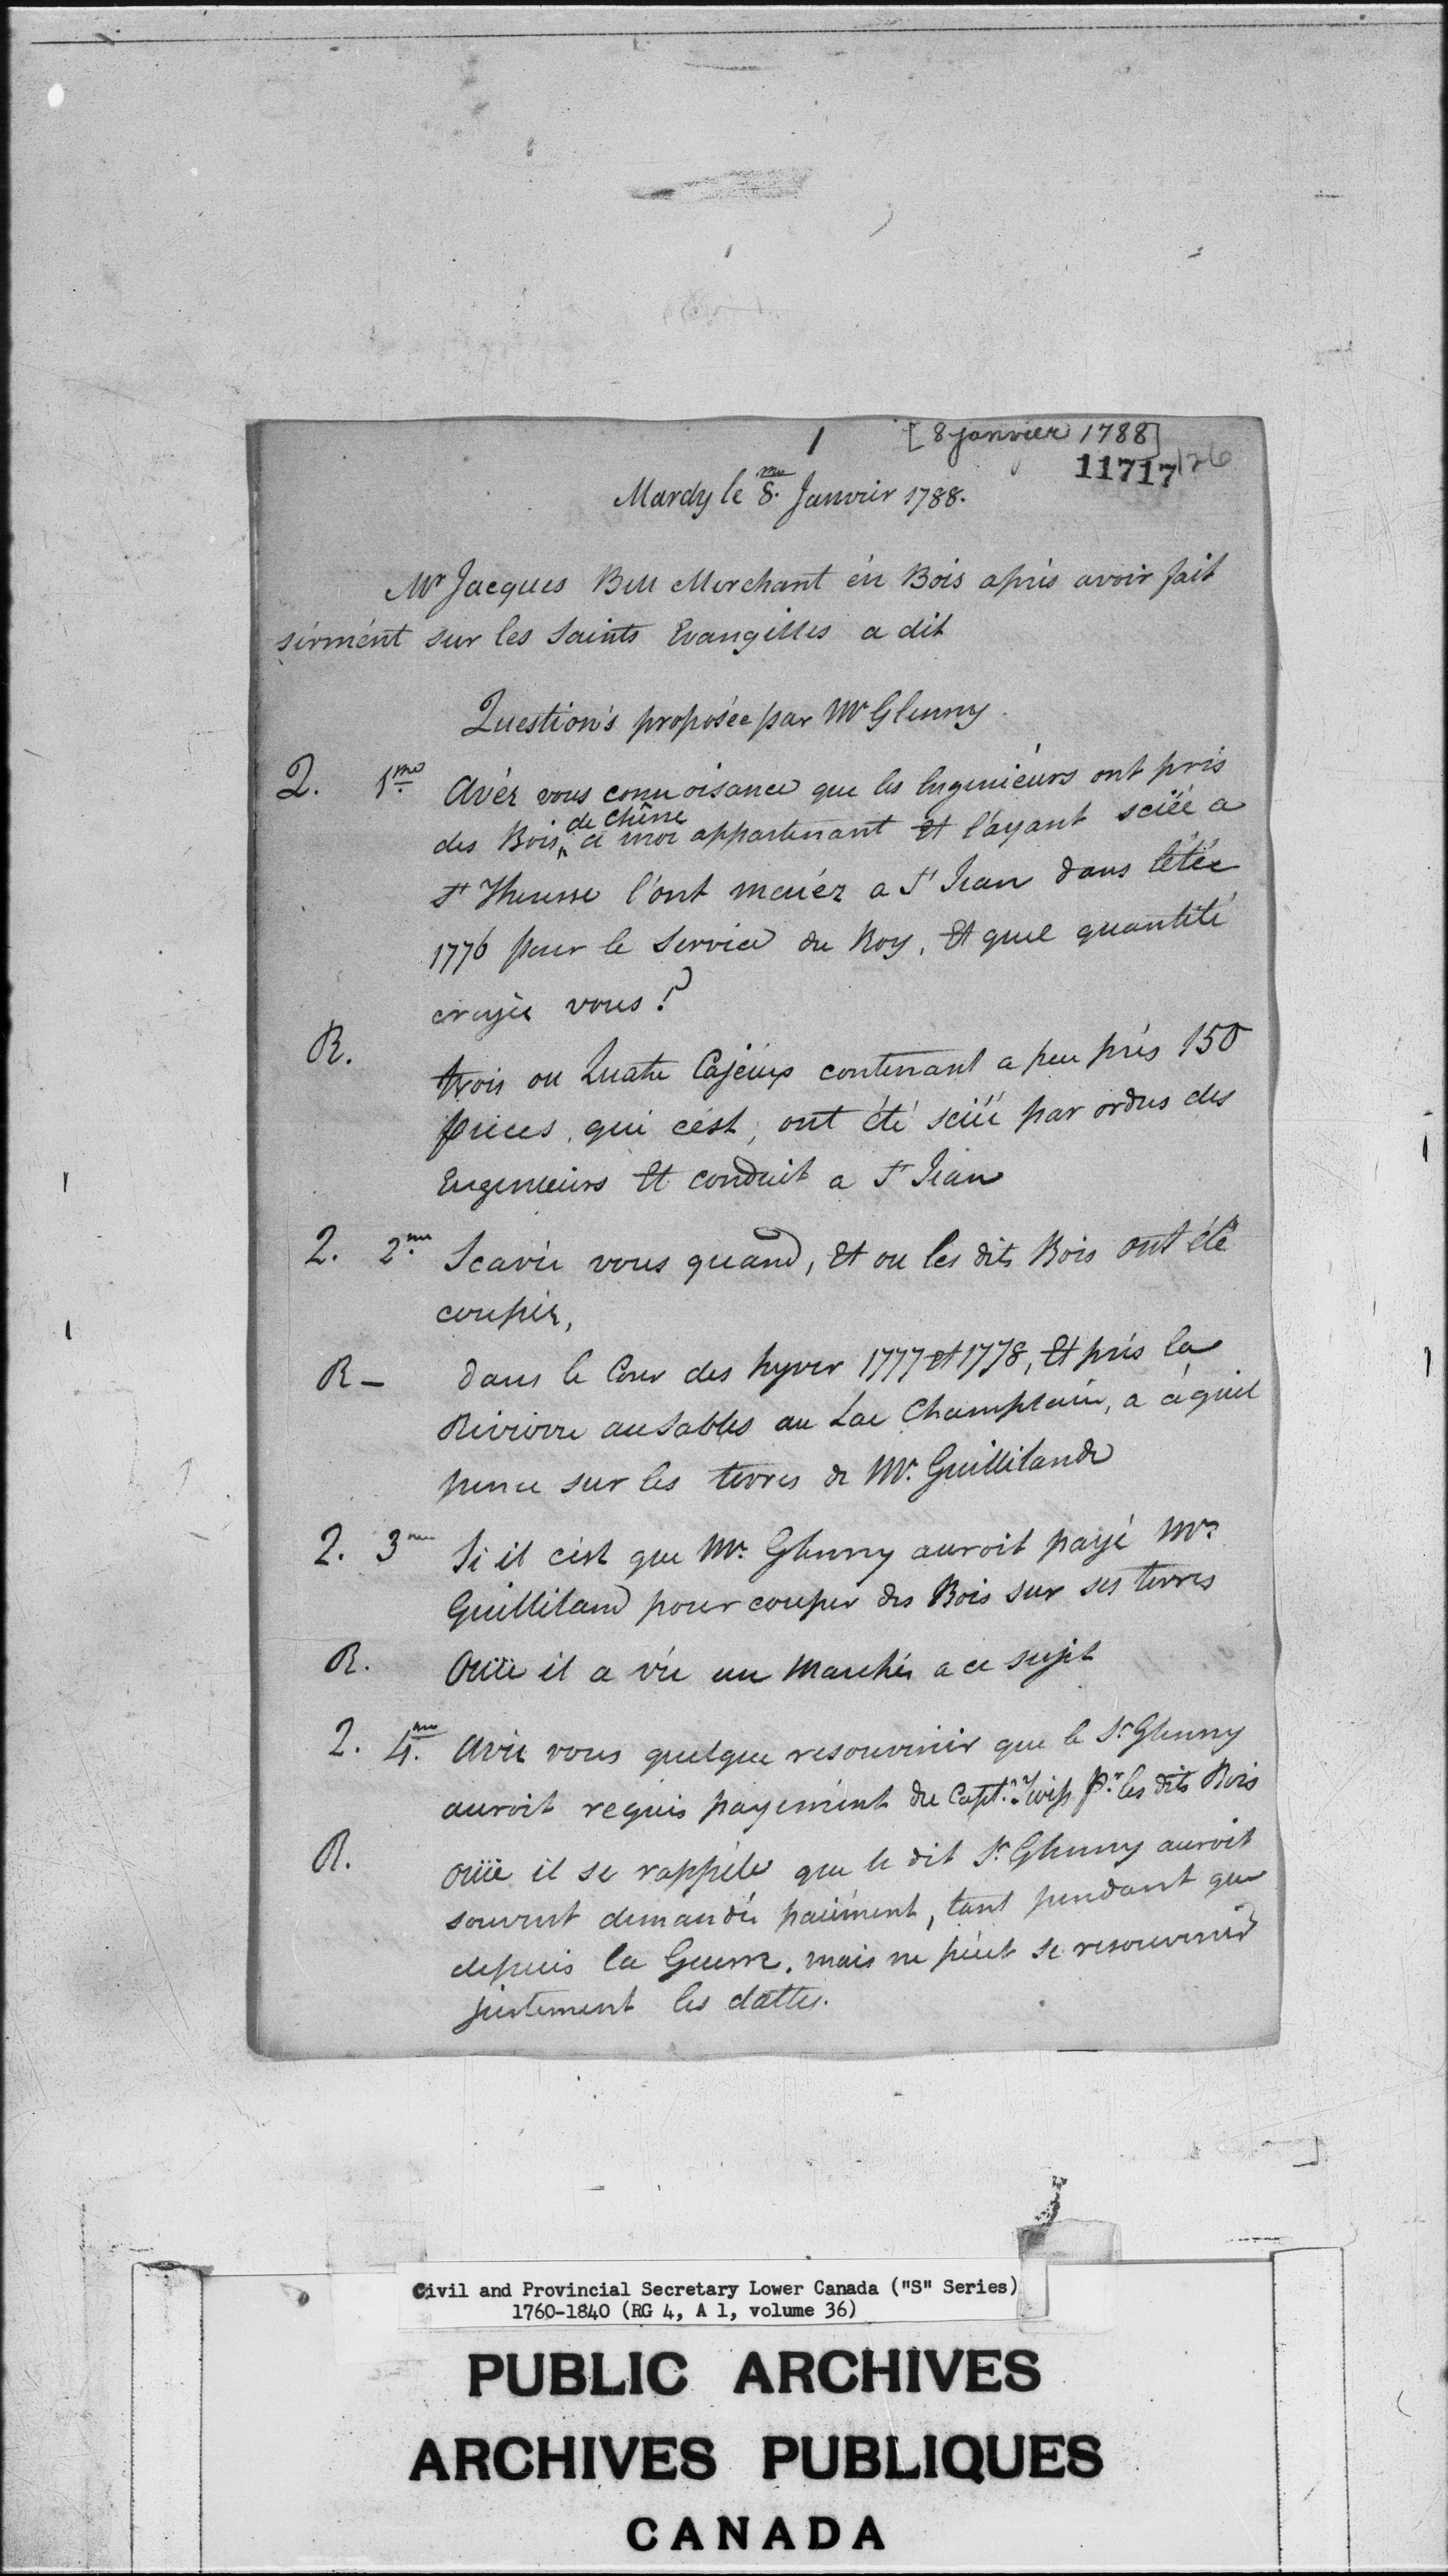 1 [8 janvier 1788]
11717 126
Mardy le 8.me Janvier 1788.
Mr Jacques Bell Merchant én Bois aprés avoir fait
sérmént sur les Saints Evangilles a dit
Question's proposée par Mr Glenny
Q. 1.me Avéz vous connoisance que les Ingeniéurs ont pris
des Bois de Chêne a moi appartenant Et l'ayant sciée a
St Therese l'ont menéz a St Jean dans l'étée
1776 pour le Service du Roy, Et quel quantité
croyée vous?
R. trois ou Quatre Cajéux contenant a peu prés 150
pieces, qui cést, ont été sciée par ordres des
Engenieurs Et conduit a St Jean
Q. 2.me Scavée vous quand, Et ou les dits Bois ont été
coupéz,
R- dans le Cour des hyver 1777 et 1778, Et prés la
Rivierre au Sables au Lac Champlain, a céquil
pence sur les terres de Mr. Guillilande
Q. 3me Si il cést que Mr. Glenny auroit payé Mr
Guilliland pour couper des Bois sur ses terres
R. Ouïe il a vée un Marchée a ce sujet
Q. 4.me Avée vous quelque resouvenir que le Sr Glenny
auroit requis payemént du Captn. Twiss Pr. les dits Bois
R. Ouïe il se rappéle que le dit Sr Glenny auroit
souvent demandée paiiément, tant pendant que
depuis la Guerre, mais ne péut se resouvenir
justement les dattes.
Civil and Provincial Secretary Lower Canada ("S" Series)
1760-1840 (RG 4, A 1, volume 36)
PUBLIC ARCHIVES
ARCHIVES PUBLIQUES
CANADA